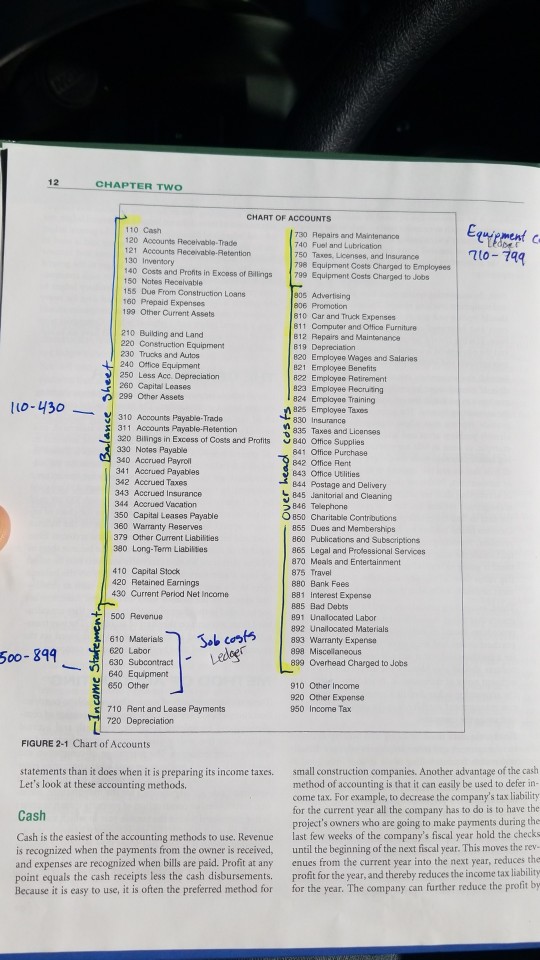 12 CHAPTER TWO
CHART OF ACCOUNTS
110 Cash
120 Accounts Receivable-Trade
121 Accounts Receivable-Retention
130 Inventory
140 Costs and Profits in Excess of Billings
150 Notes Receivable
155 Due From Construction Loans
160 Prepaid Expenses
199 Other Current Assets
210 Building and Land
220 Construction Equipment
230 Trucks and Autos
240 Office Equipment
250 Less Acc. Depreciation
260 Capital Leases
299 Other Assets
310 Accounts Payable-Trade
311 Accounts Payable-Retention
320 Billings in Excess of Costs and Profits
330 Notes Payable
340 Accrued Payroll
341 Accrued Payables
342 Accrued Taxes
343 Accrued Insurance
344 Accrued Vacation
350 Capital Leases Payable
360 Warranty Reserves
379 Other Current Liabilities
380 Long-Term Liabilities
410 Capital Stock
420 Retained Earnings
430 Current Period Net Income
500 Revenue
610 Materials
620 Labor
630 Subcontract
640 Equipment
650 Other
710 Rent and Lease Payments
720 Depreciation
110-430
Balance Sheet
500-899
Income Statement
Job costs
Ledger
730 Repairs and Maintenance
740 Fuel and Lubrication
750 Taxes, Licenses, and Insurance
798 Equipment Costs Charged to Employees
799 Equipment Costs Charged to Jobs
805 Advertising
806 Promotion
810 Car and Truck Expenses
811 Computer and Office Furniture
812 Repairs and Maintenance
819 Depreciation
820 Employee Wages and Salaries
821 Employee Benefits
822 Employee Retirement
823 Employee Recruiting
824 Employee Training
825 Employee Taxes
830 Insurance
835 Taxes and Licenses
840 Office Supplies
841 Office Purchase
842 Office Rent
843 Office Utilities
844 Postage and Delivery
845 Janitorial and Cleaning
846 Telephone
850 Charitable Contributions
855 Dues and Memberships
860 Publications and Subscriptions
865 Legal and Professional Services
870 Meals and Entertainment
875 Travel
880 Bank Fees
881 Interest Expense
885 Bad Debts
891 Unallocated Labor
892 Unallocated Materials
893 Warranty Expense
898 Miscellaneous
899 Overhead Charged to Jobs
910 Other Income
920 Other Expense
950 Income Tax
Over head costs
Equipment C
Ledger
710-799
FIGURE 2-1 Chart of Accounts
statements than it does when it is preparing its income taxes.
Let's look at these accounting methods.
Cash
Cash is the easiest of the accounting methods to use. Revenue
is recognized when the payments from the owner is received,
and expenses are recognized when bills are paid. Profit at any
point equals the cash receipts less the cash disbursements.
Because it is easy to use, it is often the preferred method for
small construction companies. Another advantage of the cash
method of accounting is that it can easily be used to defer in-
come tax. For example, to decrease the company's tax liability
for the current year all the company has to do is to have the
project's owners who are going to make payments during the
last few weeks of the company's fiscal year hold the checks
until the beginning of the next fiscal year. This moves the rev-
enues from the current year into the next year, reduces the
profit for the year, and thereby reduces the income tax liability
for the year. The company can further reduce the profit by